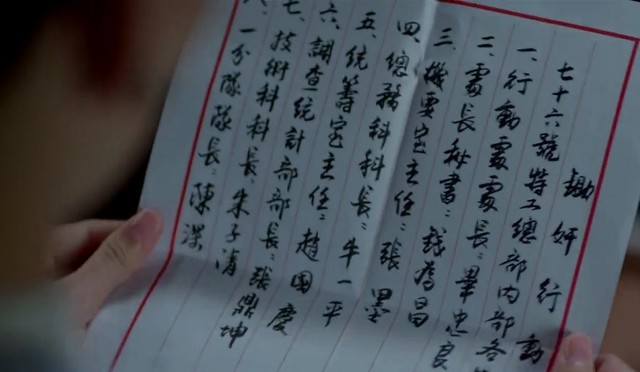 鋤奸行動
七十六號特工總部內部各
一、行動處處長：畢忠良
二、處長秘書：錢為昌
三、機要室主任：張墨
四、總務科科長：牛一平
五、統籌室主任：趙國慶
六、調查統計部部長：張鼎坤
七、技術科科長：朱子
八、一分隊隊長：陳深